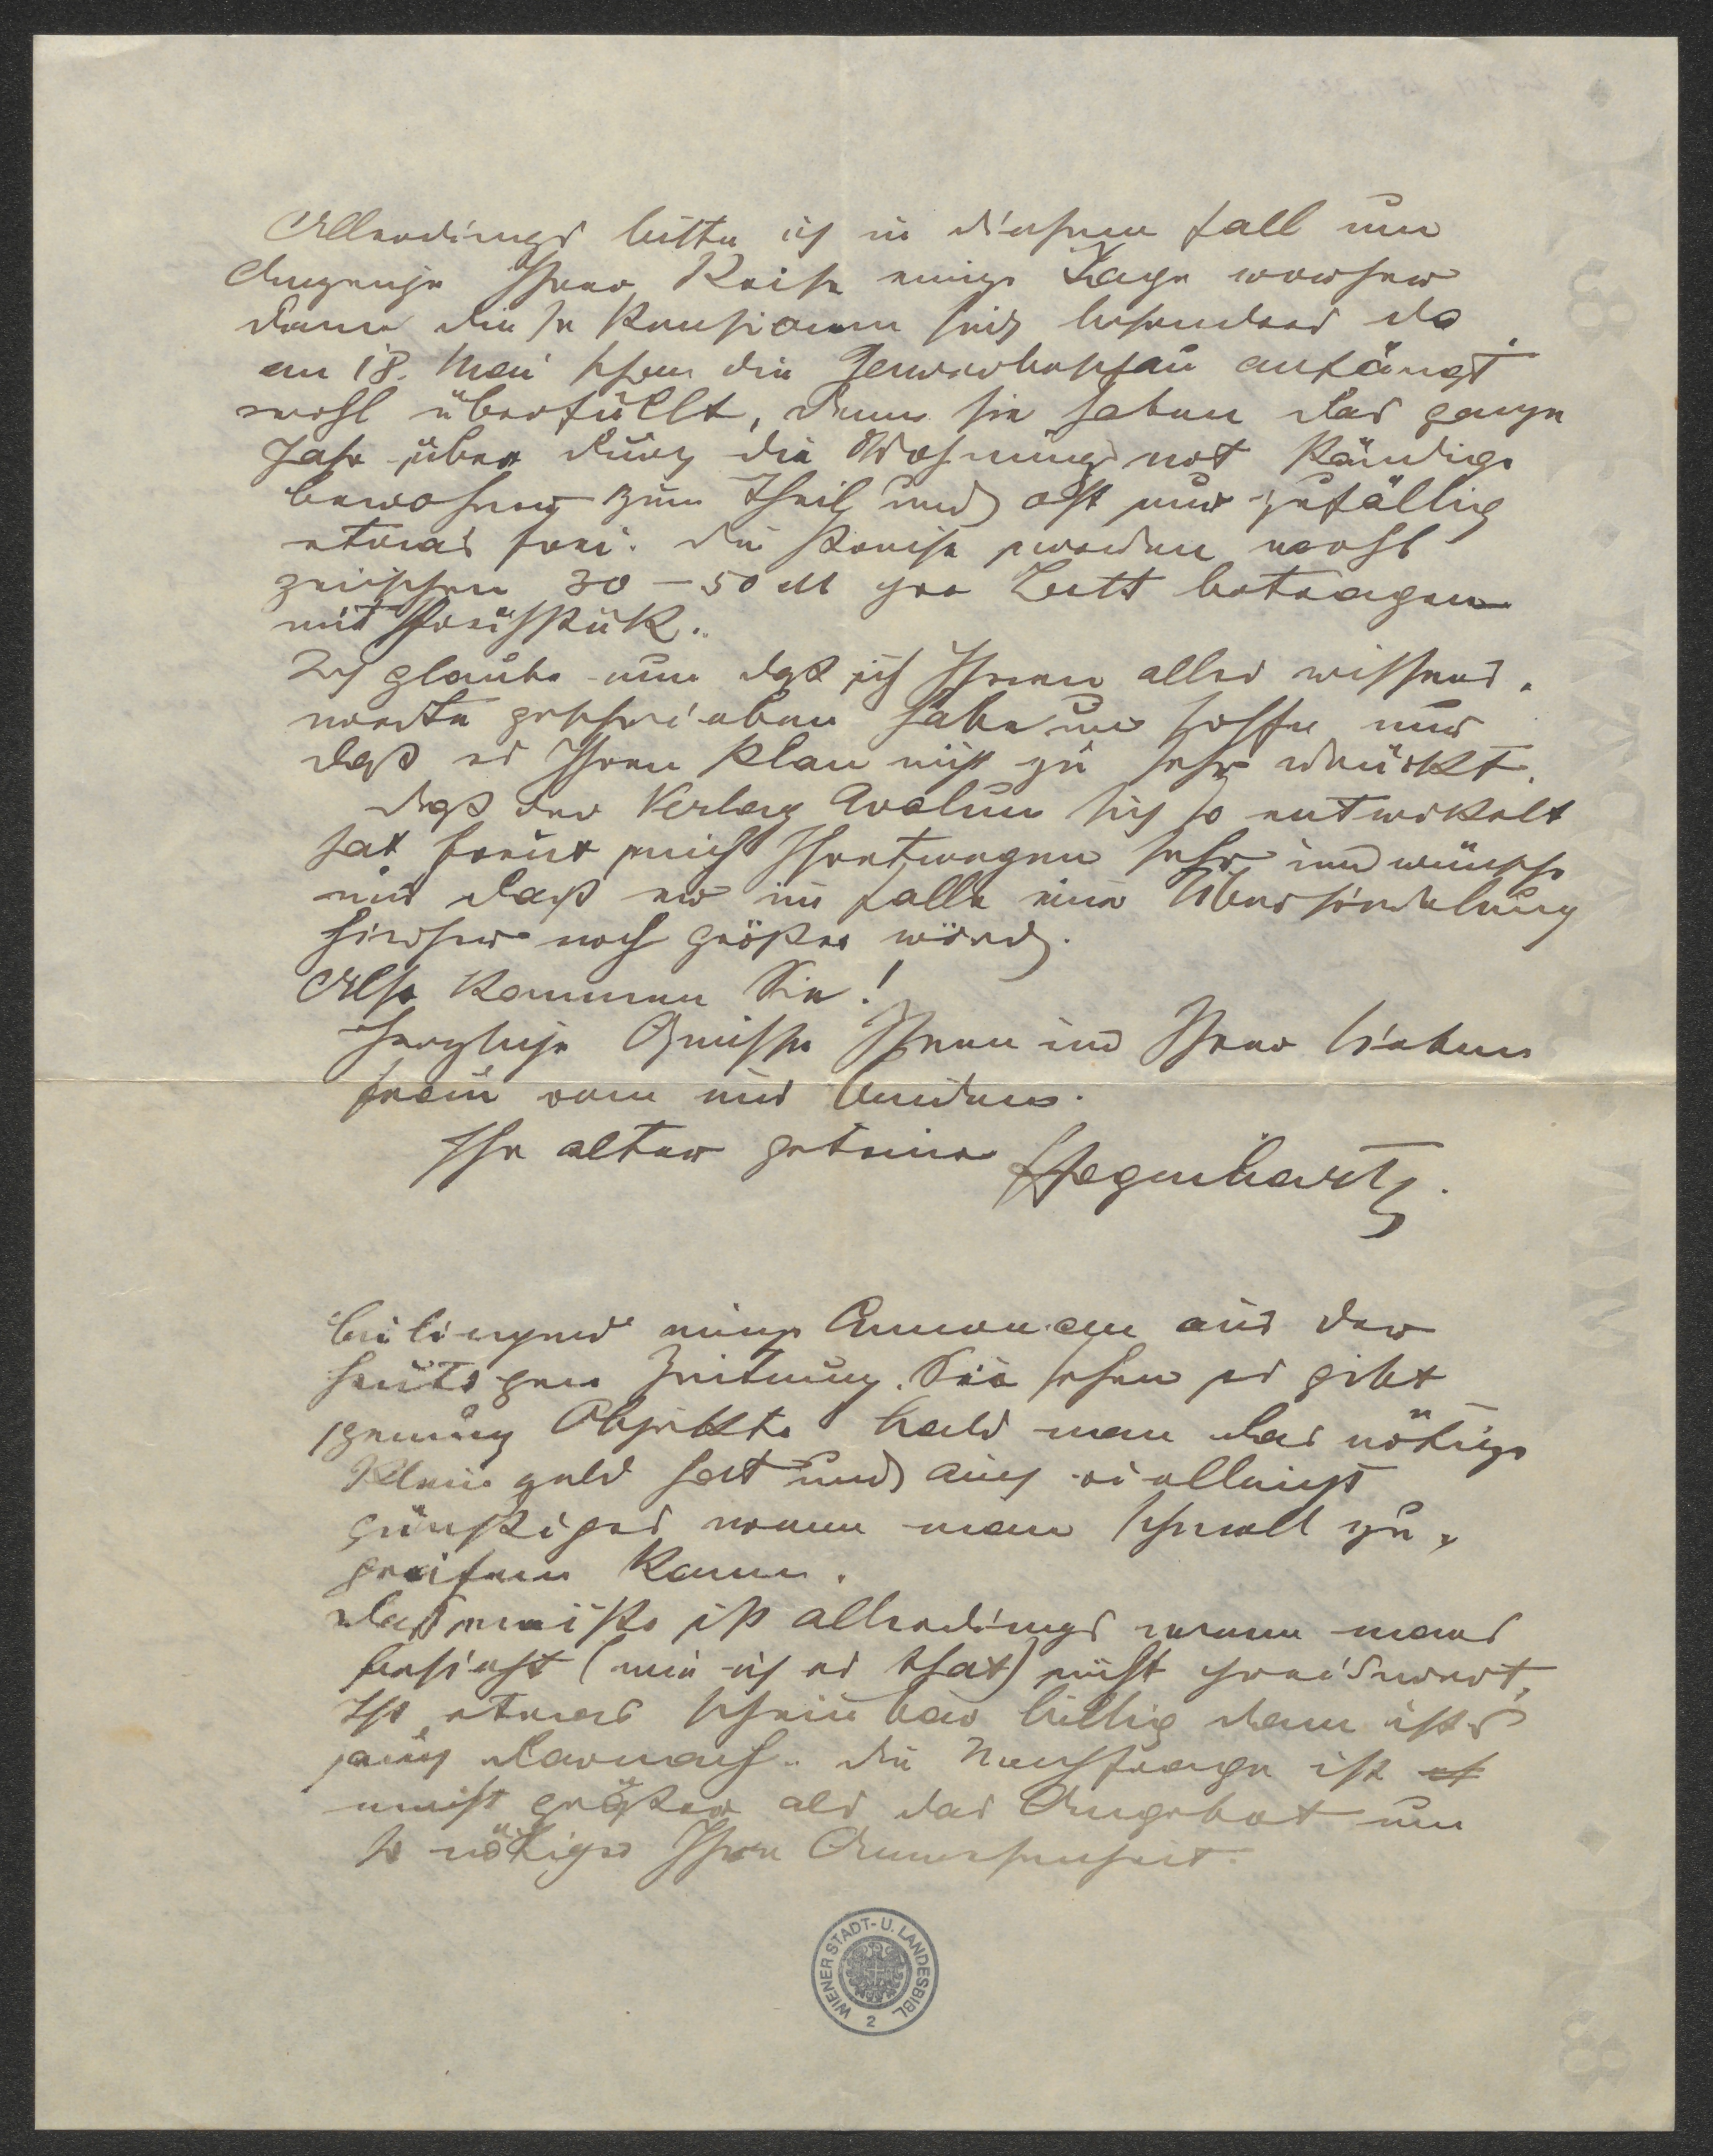 Allerdings bitte ich in diesem Fall um
Anzeige Ihrer Reise einige Tage vorher
denn diese Pensionen sind besonders da
am 18. Mai schon die Gewerbeschau anfängt
wohl überfüllt, denn sie haben das ganze
Jahr über durch die Wohnungsnot ständige
bewohner zum Theil und oft nur zufällig
etwas frei. Die Preise werden wohl
zwischen 30 – 50 M pro Bett betragen
mit Frühstük.
Ich glaube nun daß ich Ihnen alles wissens-
werte geschrieben habe und hoffe nur
daß es Ihren Plan nicht zu sehr
Daß der Verlag Avalun sich so entwikelt
hat freut mich Ihretwegen sehr und wünsche
nur daß er im Falle einer Übersiedelung
hierher noch größer würd.
Also kommen Sie!
Herzliche Grüsse Ihnen und Ihrer lieben
Frau von uns beiden.
Ihr alter getreuer Hegenbarth.
beiliegend einige Annoncen aus der
heutigen Zeitung. Sie sehen es gibt
genug Objekte bald man das nötige
Kleingeld hat und auch vielleicht
günstiges wenn man schnell zu-
greifen kann.
Das meiste ist allerdings wenn mans
besieht (wie ich es that) nicht preiswert,
Ist etwas scheinbar billig dann ists
auch darnach. Die Nachfrage ist
meist größer als das Angebot um
so nötiger Ihre Anwesenheit.
WIENER STADT- U. LANDESBIBL.
2